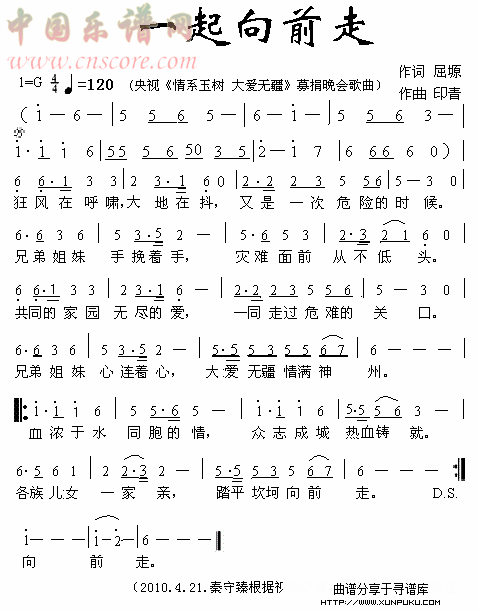 中国乐谱网
www.cnscore.com
一起向前走
1=G 4/4 ♩=120 (央视《情系玉树 大爱无疆》募捐晚会歌曲)
作词 屈塬
作曲 印青
( i — 6 — | 5 5 6 5 — | i — 6 — | 5 5 6 3 — |
i · i i 6 | 55 5 6 50 5 | 2 — i 7 | 6 66 6 0 ) |
6 6·1 3 3 | 2 2·1 6 0 | 2·2 2 3 56 | 5 — 3 0 |
狂风在呼啸,大地在抖,又是一次危险的时候。
6·3 3 6 | 5 3·5 2 — | 5·6 5 3 | 2·3 2 1 6 — |
兄弟姐妹 手挽着手, 灾难面前 从不低头。
6 6·1 3 3 | 2 2·1 6 — | 2·2 2 3 5 5 6 | 5 — 3 0 |
共同的家园 无尽的爱, 一同走过危难的关口。
6·6 3 6 | 5 3·5 2 — | 5·5 5 5 5 5 6 7 | 6 — — — |
兄弟姐妹 心连着心, 大爱无疆 情满神州。
i· i i 6 | 5 5·6 3 — | i· i i 6 | 5·5 5 6 3 — |
血浓于水 同胞的情, 众志成城 热血铸就。
6·5 6 1 | 2 2·3 2 — | 5·5 5 5 3 6 7 | 6 — — — :|
各族儿女 一家亲, 踏平坎坷向前走。 D.S.
i — — — | i i·2 6 — | i — — — | i — — — ‖
向 前 走。
(2010.4.21.秦守臻根据视
曲谱分享于寻谱库
HTTP://WWW.XUNPUKU.COM